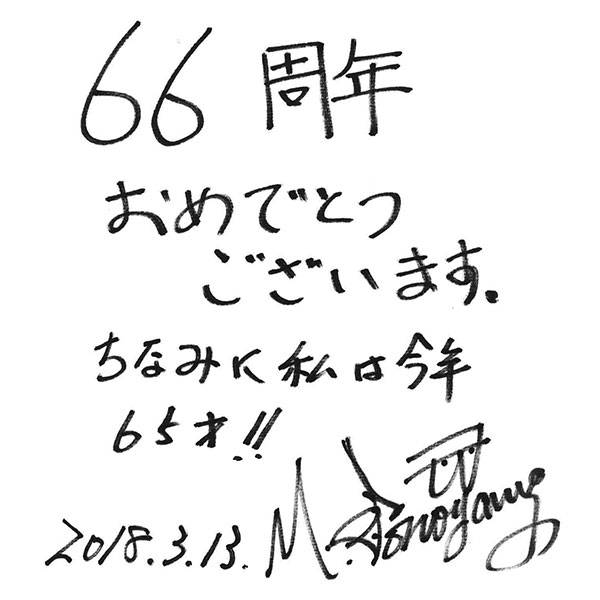 66周年
おめでとう
ございます。
ちなみに私は今年
65才!!
2018.3.13. M.